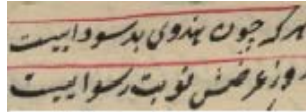 هرکه چون هندوی بد سوداییست
روز عرضش نوبت رسواییست